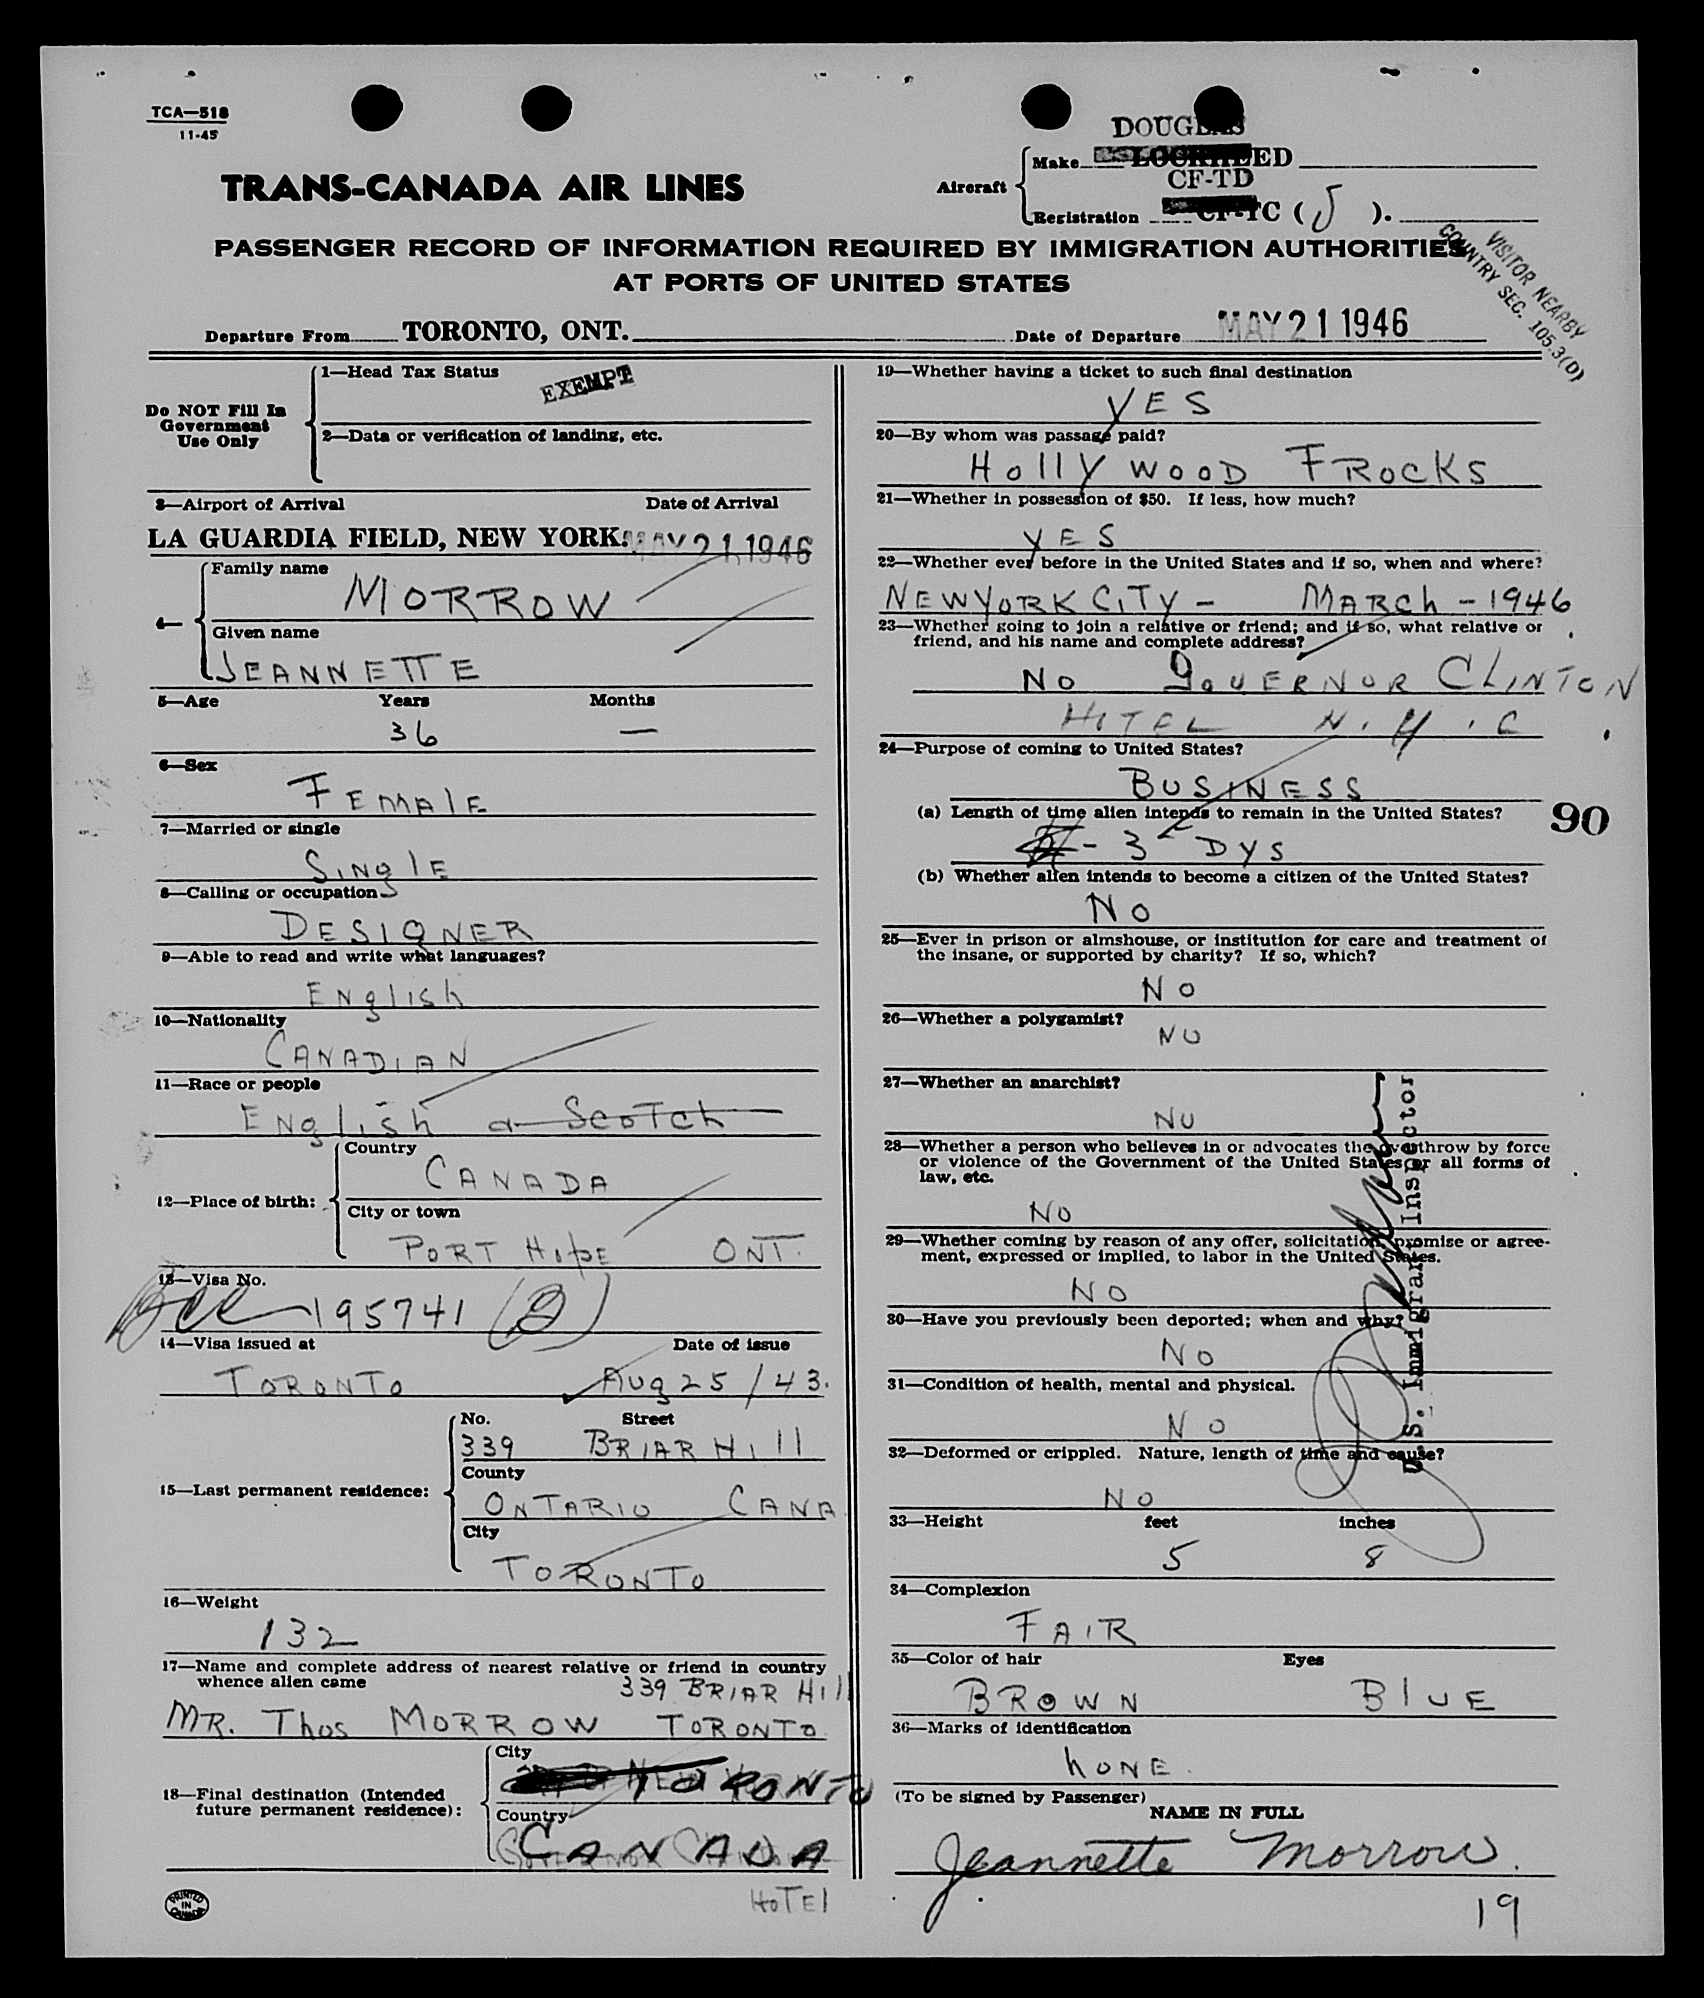 TCA—518
11-45
DOUGLAS
Make LOCKHEED
TRANS-CANADA AIR LINES
Aircraft
CF-TD
Registration CF-TC (J).
PASSENGER RECORD OF INFORMATION REQUIRED BY IMMIGRATION AUTHORITIES
AT PORTS OF UNITED STATES
VISITOR NEARBY
COUNTRY SEC. 105.3(D)
Departure From TORONTO, ONT.
Date of Departure MAY 21 1946
Do NOT Fill In
Government
Use Only
1—Head Tax Status
EXEMPT
2—Data or verification of landing, etc.
3—Airport of Arrival Date of Arrival
LA GUARDIA FIELD, NEW YORK. MAY 21 1946
4—
Family name
MORROW
Given name
JEANNETTE
5—Age Years Months
36 —
6—Sex
FEMALE
7—Married or single
SINGLE
8—Calling or occupation
DESIGNER
9—Able to read and write what languages?
ENglish
10—Nationality
CANADIAN
11—Race or people
ENglish a Scotch
12—Place of birth:
Country
CANADA
City or town
PORT HOPE ONT.
13—Visa No.
BCC 195741
14—Visa issued at Date of issue
TORONTO Aug 25/43.
15—Last permanent residence:
No. Street
339 BRIAR HIll
County
ONTARIO CANA
City
TORONTO
16—Weight
132
17—Name and complete address of nearest relative or friend in country
whence alien came
339 BRIAR HIll
MR. Thos MORROW TORONTO.
18—Final destination (Intended
future permanent residence):
City
TORONTO
Country
CANADA
HOTEL
PRINTED
IN
CANADA
19—Whether having a ticket to such final destination
YES
20—By whom was passage paid?
HOLLYWOOD FROCKS
21—Whether in possession of $50. If less, how much?
YES
22—Whether ever before in the United States and if so, when and where?
NEW YORK CITY - MARCH - 1946
23—Whether going to join a relative or friend; and if so, what relative or
friend, and his name and complete address?
NO GOVERNOR CLINTON
HOTEL N.Y.C
24—Purpose of coming to United States?
BUSINESS
(a) Length of time alien intends to remain in the United States?
- 3 DYS
90
(b) Whether alien intends to become a citizen of the United States?
NO
25—Ever in prison or almshouse, or institution for care and treatment of
the insane, or supported by charity? If so, which?
NO
26—Whether a polygamist?
NO
27—Whether an anarchist?
NO
28—Whether a person who believes in or advocates the overthrow by force
or violence of the Government of the United States or all forms of
law, etc.
NO
29—Whether coming by reason of any offer, solicitation, promise or agree-
ment, expressed or implied, to labor in the United States.
NO
30—Have you previously been deported; when and why?
NO
31—Condition of health, mental and physical.
NO
32—Deformed or crippled. Nature, length of time and cause?
NO
U.S. Immigrant Inspector
33—Height feet inches
5 8
34—Complexion
FAIR
35—Color of hair Eyes
BROWN BLUE
36—Marks of identification
NONE.
(To be signed by Passenger)
NAME IN FULL
Jeannette Morrow.
19